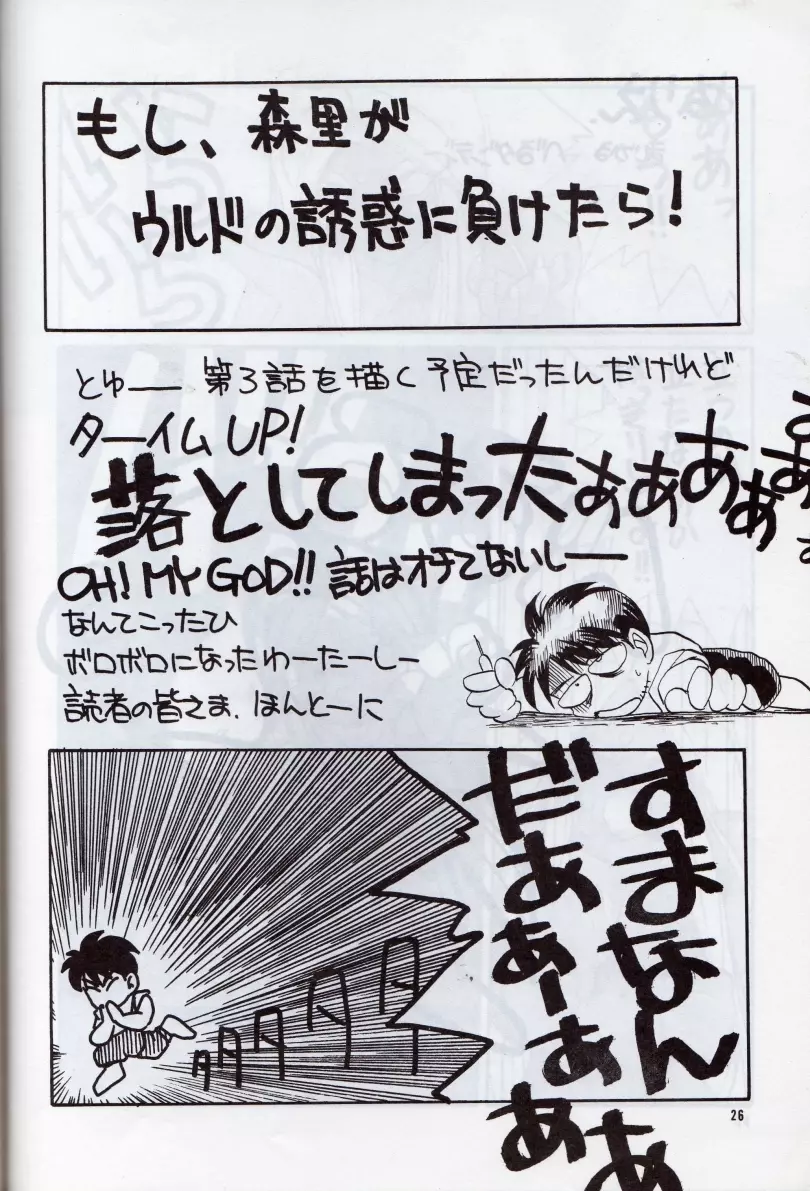 もし、森里が
ウルドの誘惑に負けたら!
とゅ—— 第3話を描く予定だったんだけれど
ターイムUP!
落としてしまったぁぁあぁぁ
OH! MY GOD!! 話はオチてないし——
なんてこったひ
ボロボロになったわーたーしー
読者の皆さま、ほんとーに
すまなん
だあぁーぁあぁぁ
26